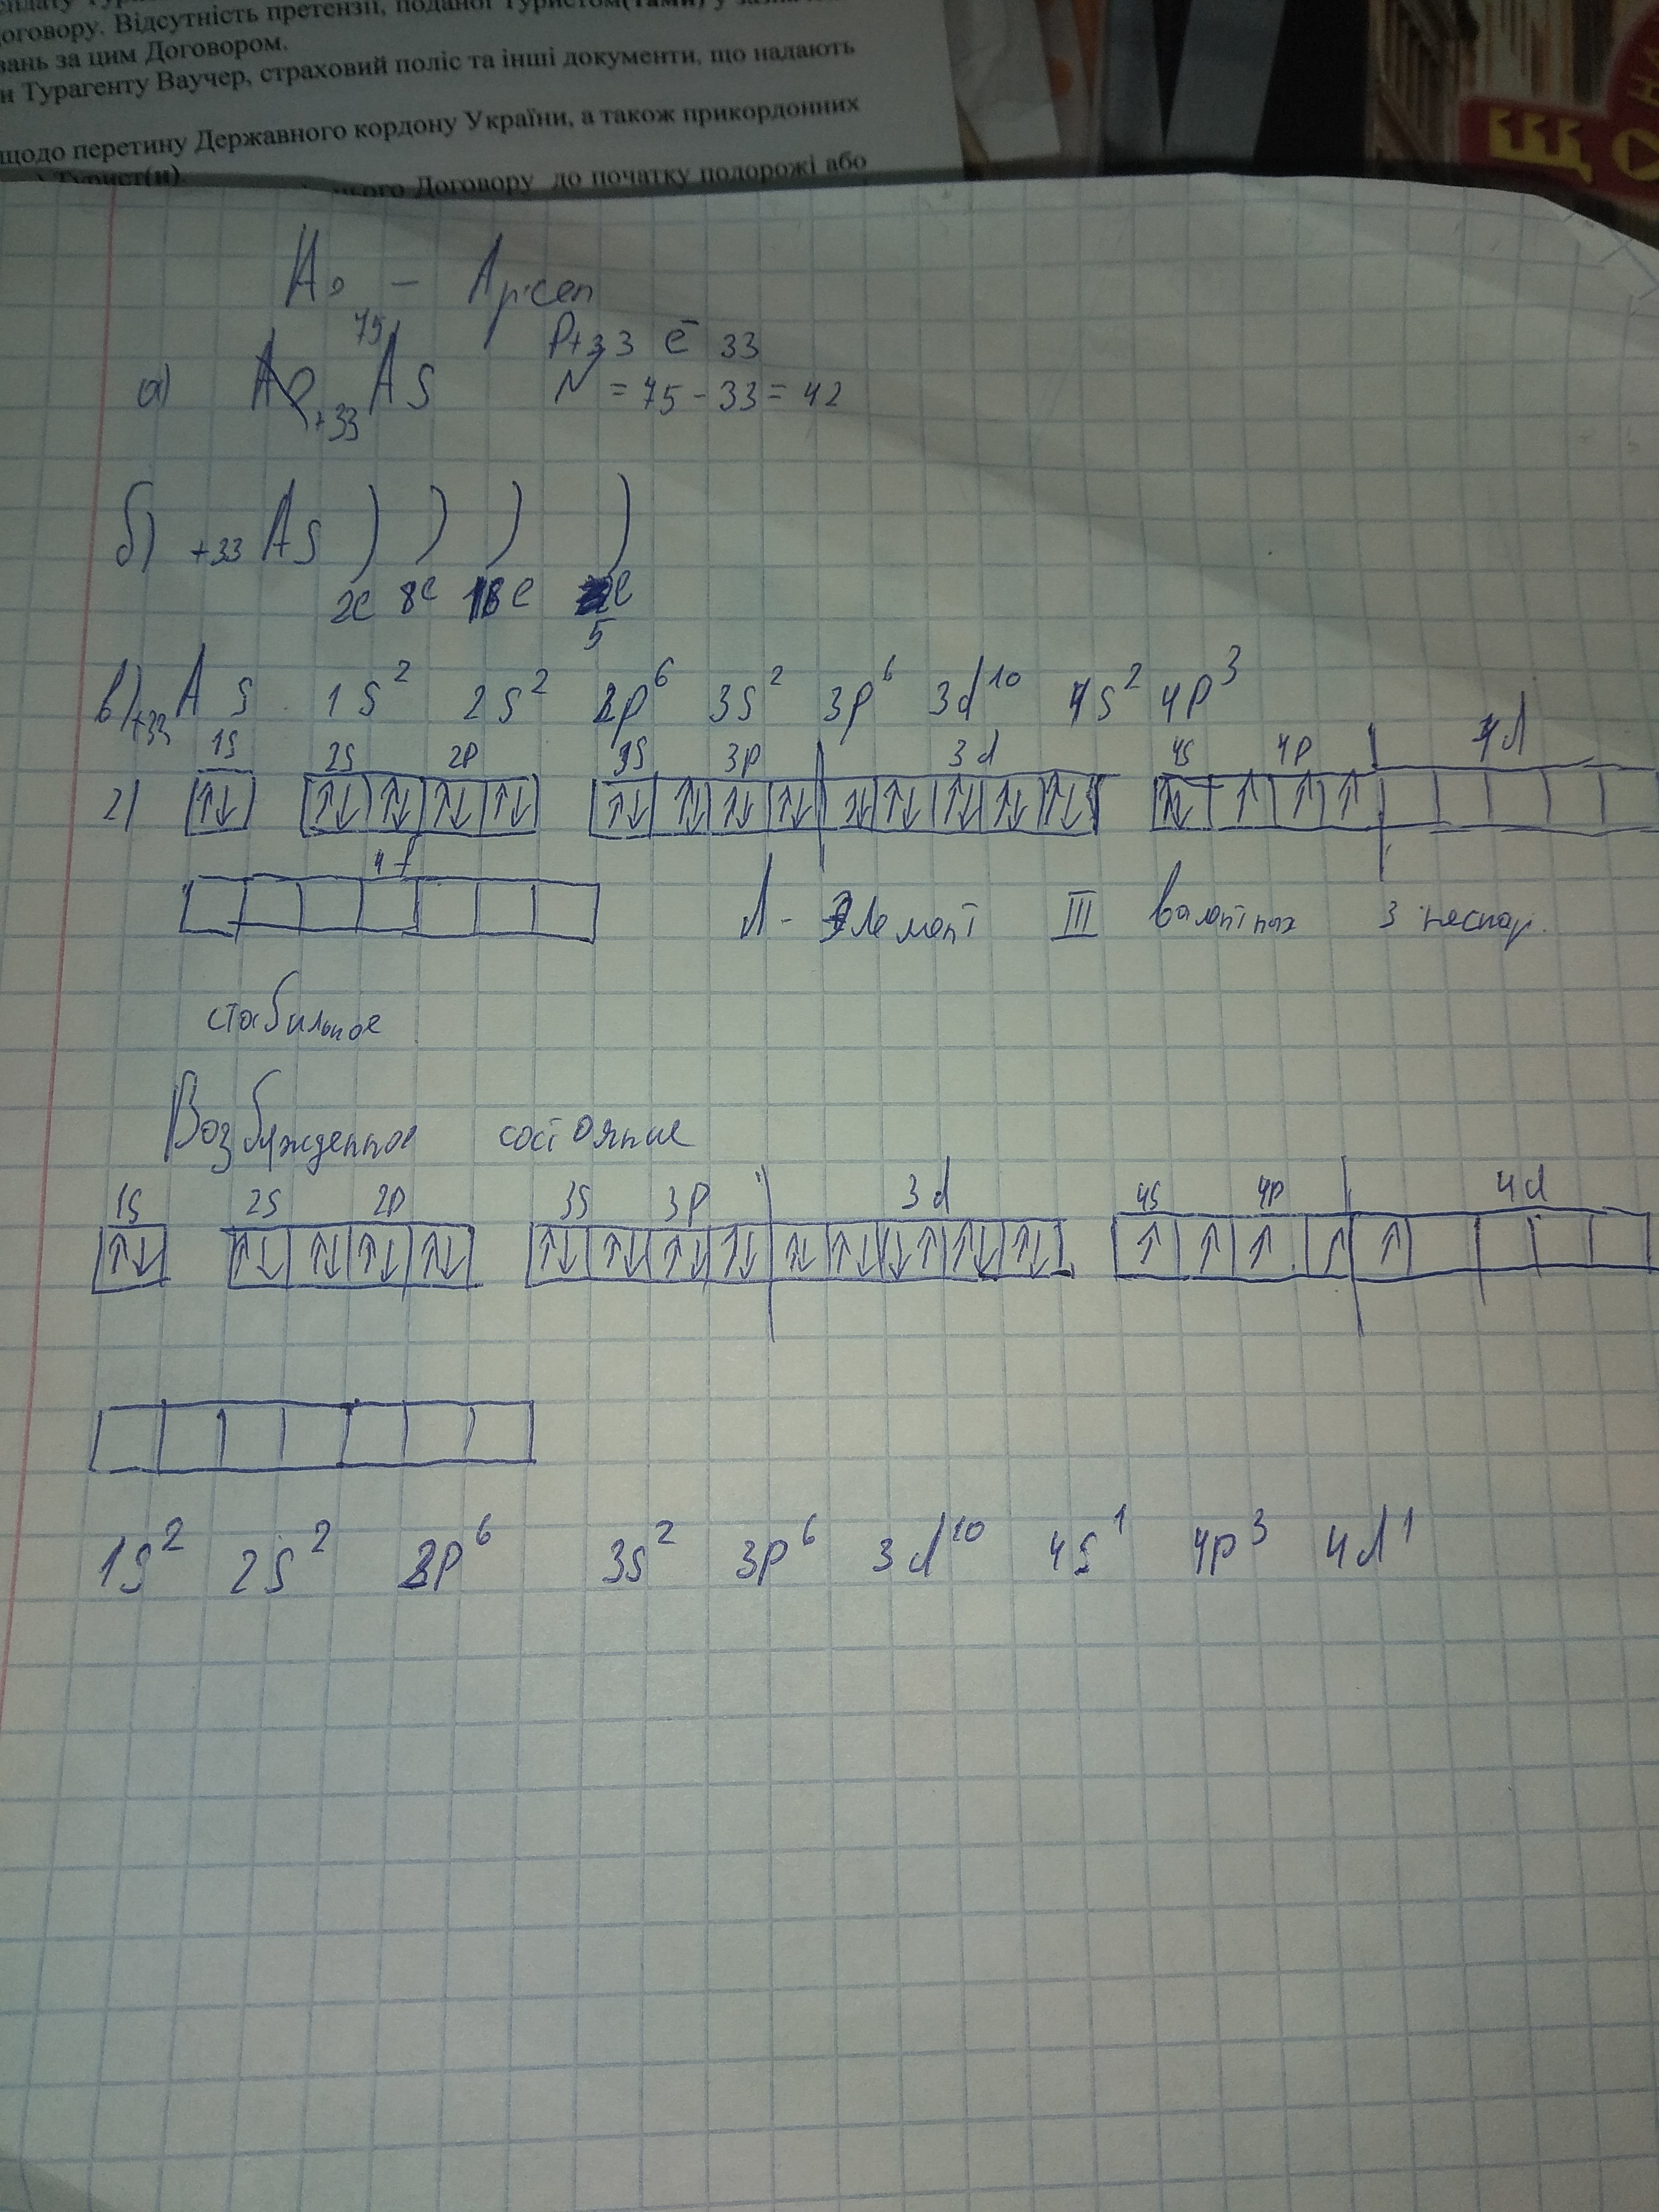 оговору. Відсутність претензії, поданої Туристом(тами) у
вань за цим Договором.
и Турагенту Ваучер, страховий поліс та інші документи, що надають
щодо перетину Державного кордону України, а також прикордонних
Турист(и)
Договору до початку подорожі або
As - Арісен
а) 75 +33 As P+33 e̅ 33
N = 75 - 33 = 42
б) +33 As ) ) ) )
2e 8e 18e e
5
в) +33 As 1s² 2s² 2p⁶ 3s² 3p⁶ 3d¹⁰ 4s² 4p³
1s 2s 2p 3s 3p 3d 4s 4p 4d
г) ↑↓ ↑↓ ↑↓ ↑↓ ↑↓ ↑↓ ↑↓ ↑↓ ↑↓ ↑↓ ↑↓ ↑↓ ↑↓ ↑↓ ↑↓ ↑ ↑ ↑
4f
Элемент III 3 неспар.
стабильное
Возбужденное состояние
1s 2s 2p 3s 3p 3d 4s 4p 4d
↑↓ ↑↓ ↑↓ ↑↓ ↑↓ ↑↓ ↑↓ ↑↓ ↑↓ ↑↓ ↑↓ ↓↑ ↑↓ ↑↓ ↑ ↑ ↑ ↑ ↑
1s² 2s² 2p⁶ 3s² 3p⁶ 3d¹⁰ 4s¹ 4p³ 4d¹